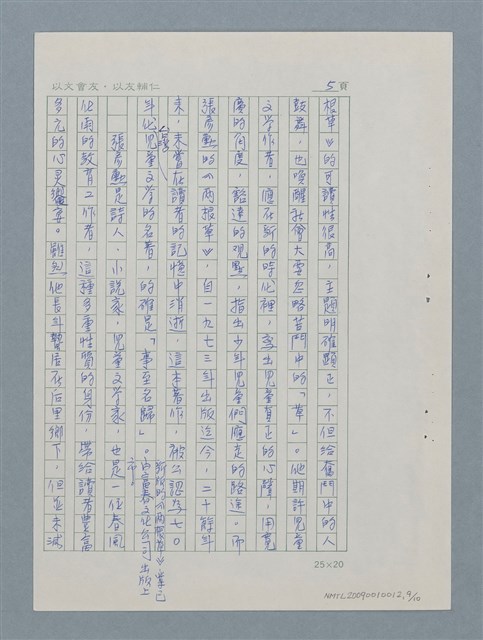 以文會友・以友輔仁
5頁
根草》的可讀性很高,主題明確顯正,不但給奮鬥中的人
鼓舞,也喚醒社會大眾忽略苦鬥中的「草」。他期許兒童
文學作者,應在新的時代裡,寫出兒童真正的心聲,用寬
廣的角度,豁達的观點,指出少年兒童們應走的路途。而
張彥勳的《兩根草》,自一九七三年出版迄今,二十餘年
來,未嘗在讀者的記憶中消逝,這本著作,被公認為七〇
年代兒童文學的名著,的確是「實至名歸」。
新版的《兩根草》,業已由富春文化公司出版上市。
張彥勳是詩人、小說家、兒童文學家,也是一位春風
化雨的教育工作者,這種多重性質的身份,帶給讀者豐富
多元的心灵饗宴。雖然他長年蟄居在后里鄉下,但並未減
25×20
NMTL20090010012,9/10